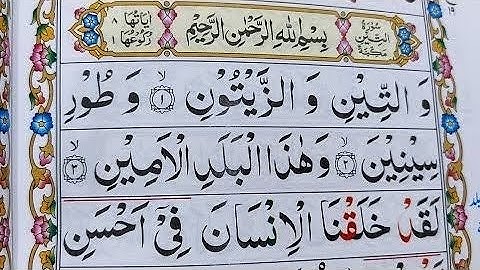 سُوْرَةُ التِّيْنِ مَكِّيَّةٌ
بِسْمِ اللهِ الرَّحْمٰنِ الرَّحِيْمِ
اٰيَاتُهَا ٨
رُكُوْعُهَا ١
وَ التِّيْنِ وَ الزَّيْتُوْنِ ۙ﴿١﴾ وَ طُوْرِ
سِيْنِيْنَ ۙ﴿٢﴾ وَ هٰذَا الْبَلَدِ الْاَمِيْنِ ۙ﴿٣﴾
لَقَدْ خَلَقْنَا الْاِنْسَانَ فِيْۤ اَحْسَنِ